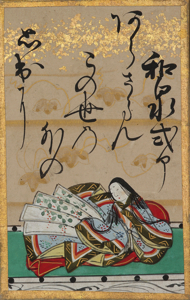 和泉式部
あらさらん
この世の
ほかの